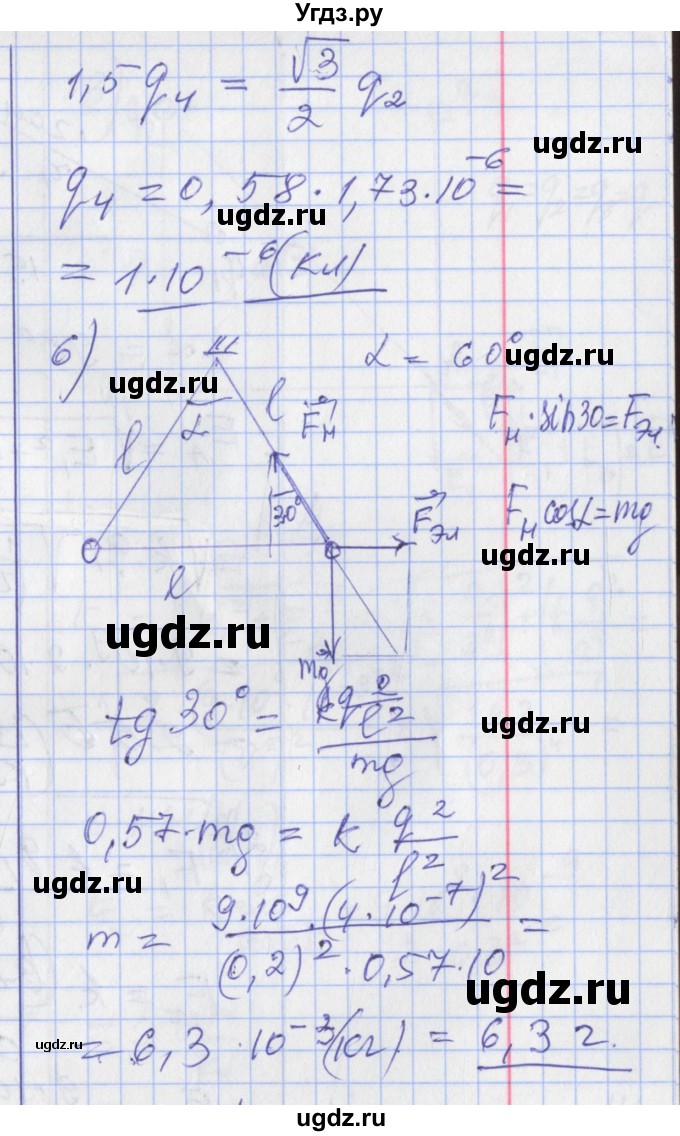 Угдз.ру
1,5 q₄ = √3/2 q₂
ugdz.ru
q₄ = 0,58 · 1,73 · 10⁻⁶ =
ugdz.ru
= 1 · 10⁻⁶ (Кл)
6)
α = 60°
ugdz.ru
ugdz.ru
l
α
l
F⃗н
Fн · sin30 = Fэл.
30°
F⃗эл
Fн cosα = mg
ugdz.ru
l
ugdz.ru
mg⃗
tg 30° = (k q²/l²)/mg
ugdz.ru
0,57 · mg = k q²/l²
ugdz.ru
m = 9·10⁹ · (4·10⁻⁷)² / (0,2)² · 0,57 · 10 =
ugdz.ru
ugdz.ru
= 6,3 · 10⁻³ (кг) = 6,3 г.
ugdz.ru